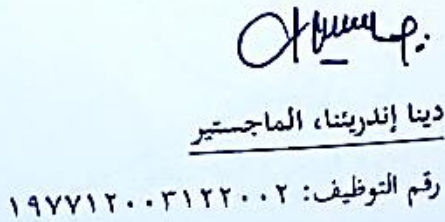 دينا إندريئنا، الماجستير
رقم التوظيف: ١٩٧٧١٢٠٠٣١٢٢٠٠٢